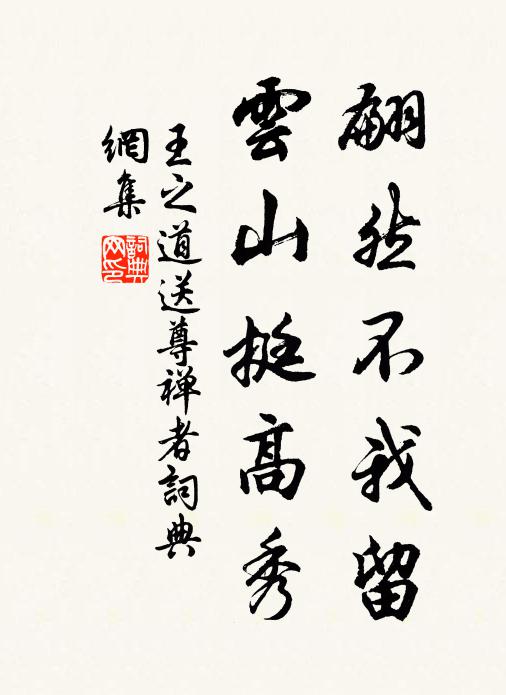 翩然不我留
雲山挺高秀
王之道送尊禅者詞典
網集
詞典
网印